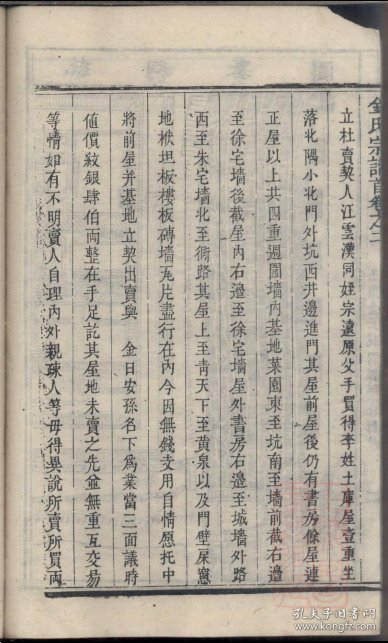 金氏宗譜首卷之二
立杜賣契人汪雲漢同姪宗遠原父手買得李姓土庫屋壹重坐
落北隅小北門外坑西井邊進門其屋前屋後仍有書房餘屋連
正屋以上共四重週圍墻內基地菜園東至坑南至墻前截右邊
至徐宅墻後截屋內右邊至徐宅墻屋外書房右邊至城墻外路
西至朱宅墻北至衖路其屋上至青天下至黃泉以及門壁床窻
地栿坦板樓板磚墻瓦片盡行在內今因無錢支用自情愿托中
將前屋并基地立契出賣與 金日安孫名下為業當三面議時
值價紋銀肆伯兩整在手足訖其屋地未賣之先並無重互交易
等情如有不明賣人自理內外親疎人等毋得異說所賣所買兩
孔夫子旧书网